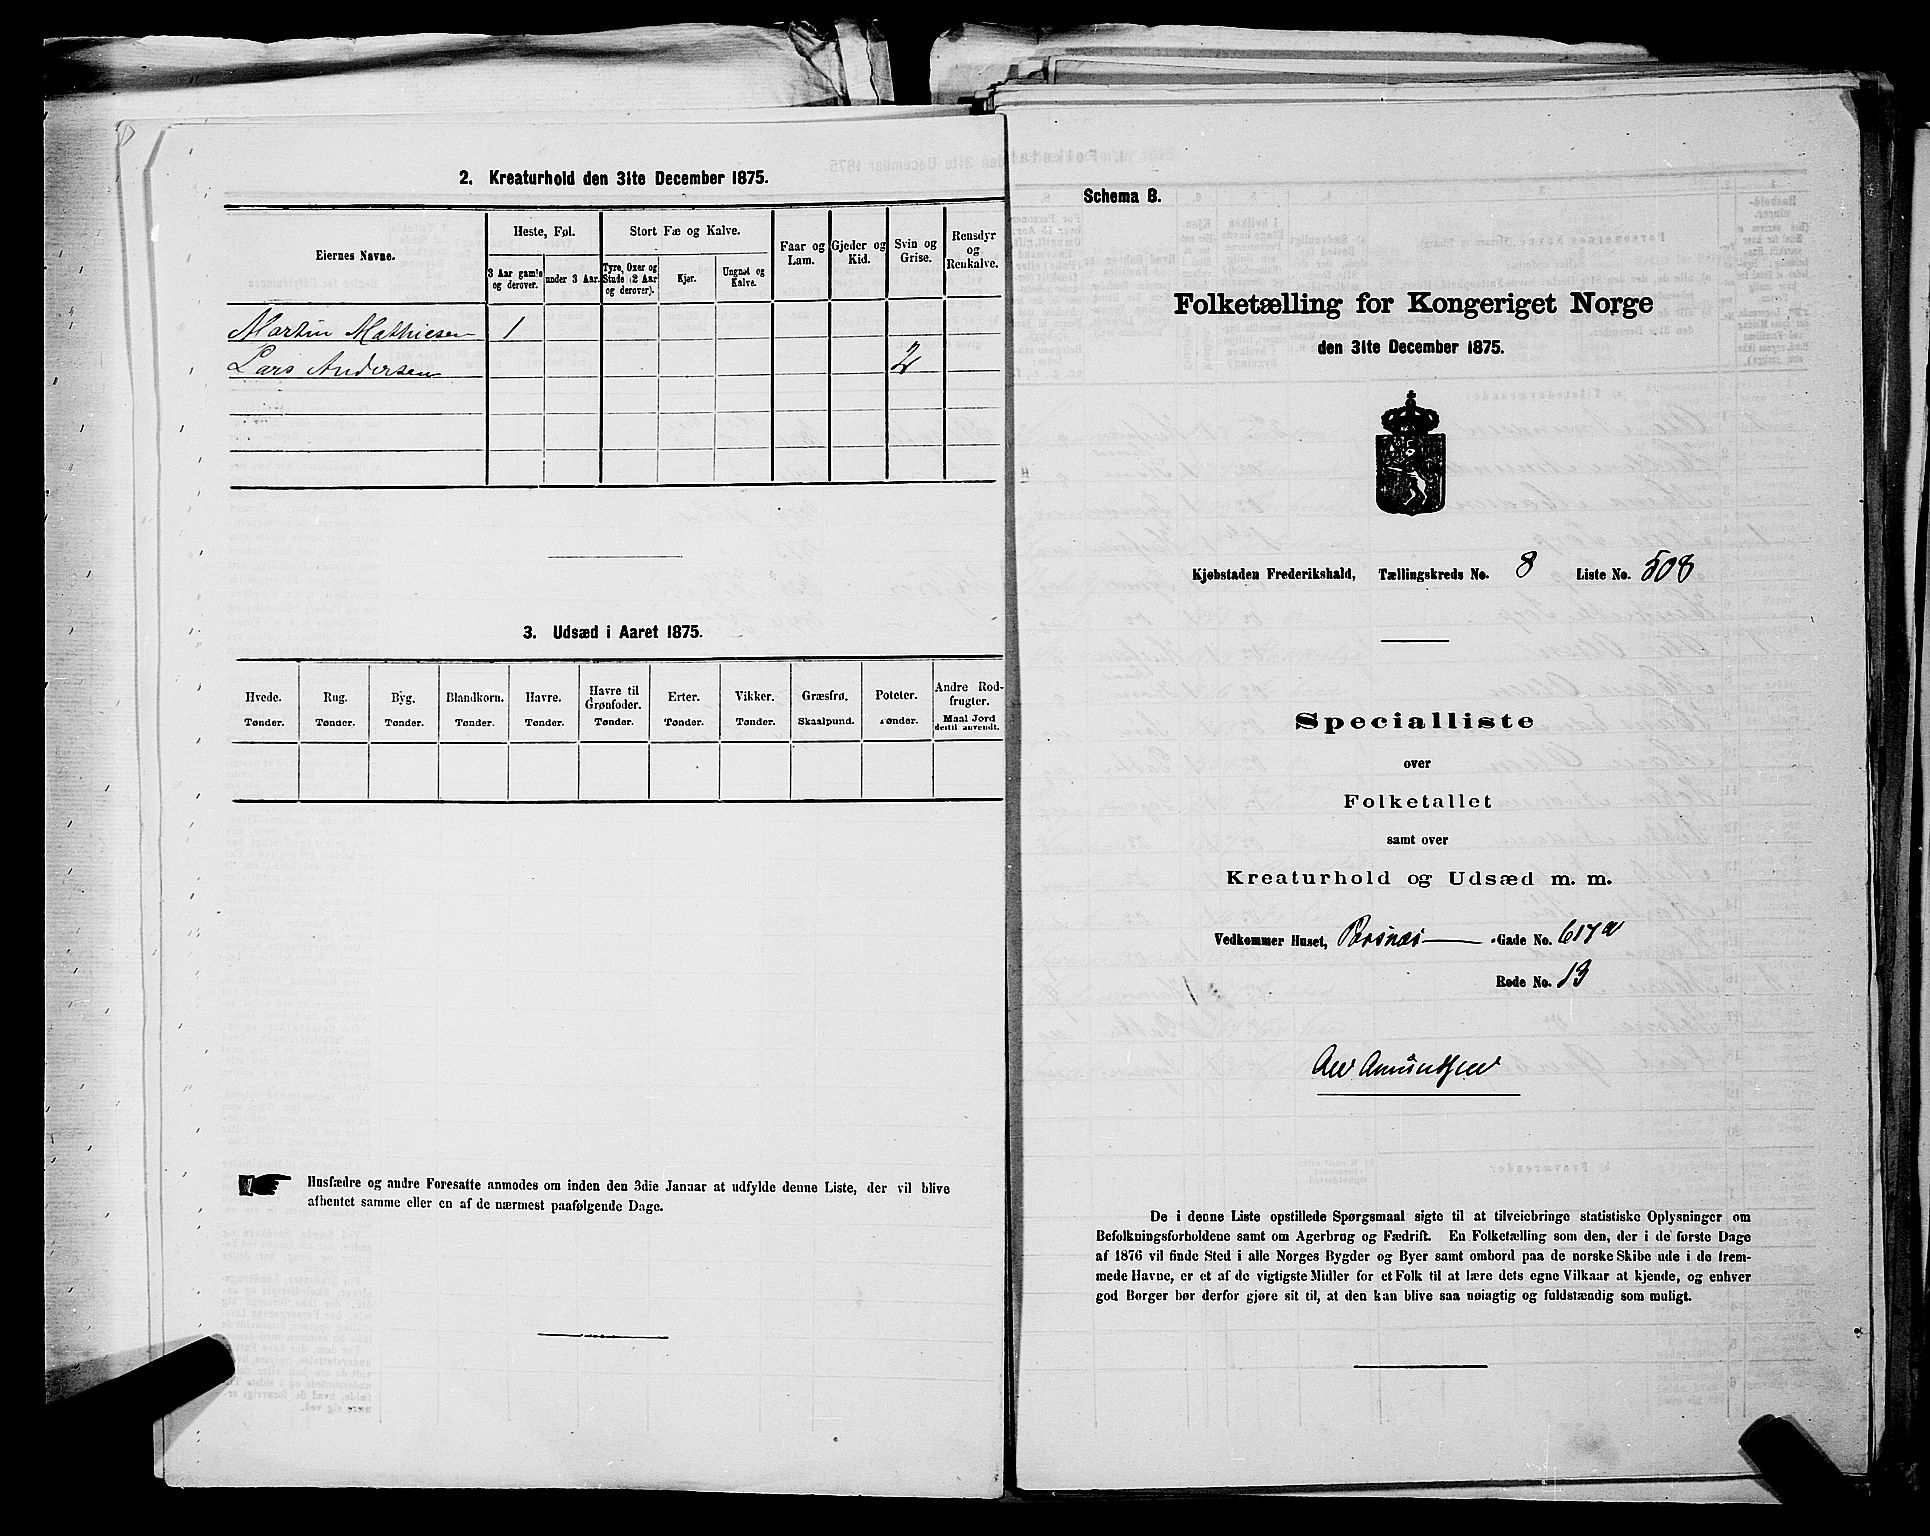 2. Kreaturhold den 31te December 1875.
Eiernes Navne.
Heste, Føl.
Stort Fæ og Kalve.
Faar og Lam.
Gjeder og Kid.
Svin og Grise.
Rensdyr og Renkalve.
3 Aar gamle og derover.
under 3 Aar.
Tyre, Oxer og Stude (2 Aar og derover).
Kjør.
Ungnøt og Kalve.
Martin Mathiesen 1
Lars Andersen 2
3. Udsæd i Aaret 1875.
Hvede. Rug. Byg. Blandkorn. Havre. Havre til Grønfoder. Erter. Vikker. Græsfrø. Poteter. Andre Rodfrugter.
Tønder. Tønder. Tønder. Tønder. Tønder. Tønder. Tønder. Tønder. Skaalpund. Tønder. Maal Jord dertil anvendt.
Husfædre og andre Foresatte anmodes om inden den 3die Januar at udfylde denne Liste, der vil blive
afhentet samme eller en af de nærmest paafølgende Dage.
Schema B.
Folketælling for Kongeriget Norge
den 31te December 1875.
Kjøbstaden Frederikshald, Tællingskreds No. 8 Liste No. 508
Specialliste
over
Folketallet
samt over
Kreaturhold og Udsæd m. m.
Vedkommer Huset, Gade No. 617a
Rode No. 13
Amundsen
De i denne Liste opstillede Spørgsmaal sigte til at tilveiebringe statistiske Oplysninger om
Befolkningsforholdene samt om Agerbrug og Fædrift. En Folketælling som den, der i de første Dage
af 1876 vil finde Sted i alle Norges Bygder og Byer samt ombord paa de norske Skibe ude i de frem-
mede Havne, er et af de vigtigste Midler for et Folk til at lære dets egne Vilkaar at kjende, og enhver
god Borger bør derfor gjøre sit til, at den kan blive saa nøiagtig og fuldstændig som muligt.